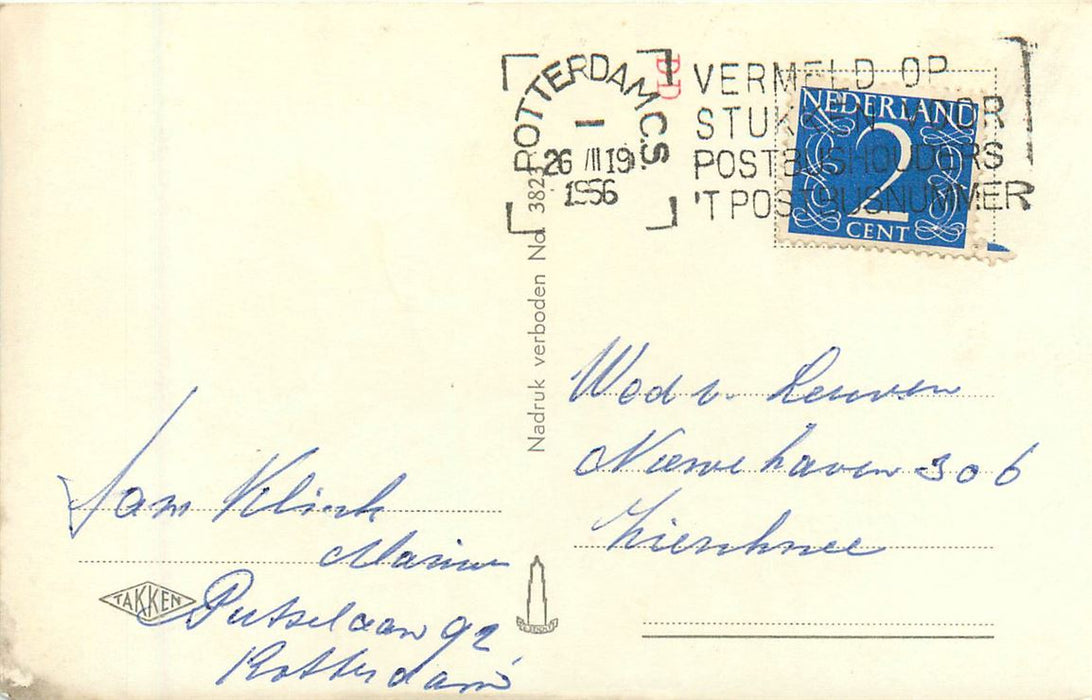 ROTTERDAM C.S.
1
26 III 19
1956
VERMELD OP
STUKKEN VOOR
POSTBUSHOUDERS
'T POSTBUSNUMMER
NEDERLAND
2
CENT
Nadruk verboden No. 3823
Wed v. Leuven
Nieuwe haven 306
Zierikzee
Jam Klink
Marinus
Putselaan 92
Rotterdam
TAKKEN